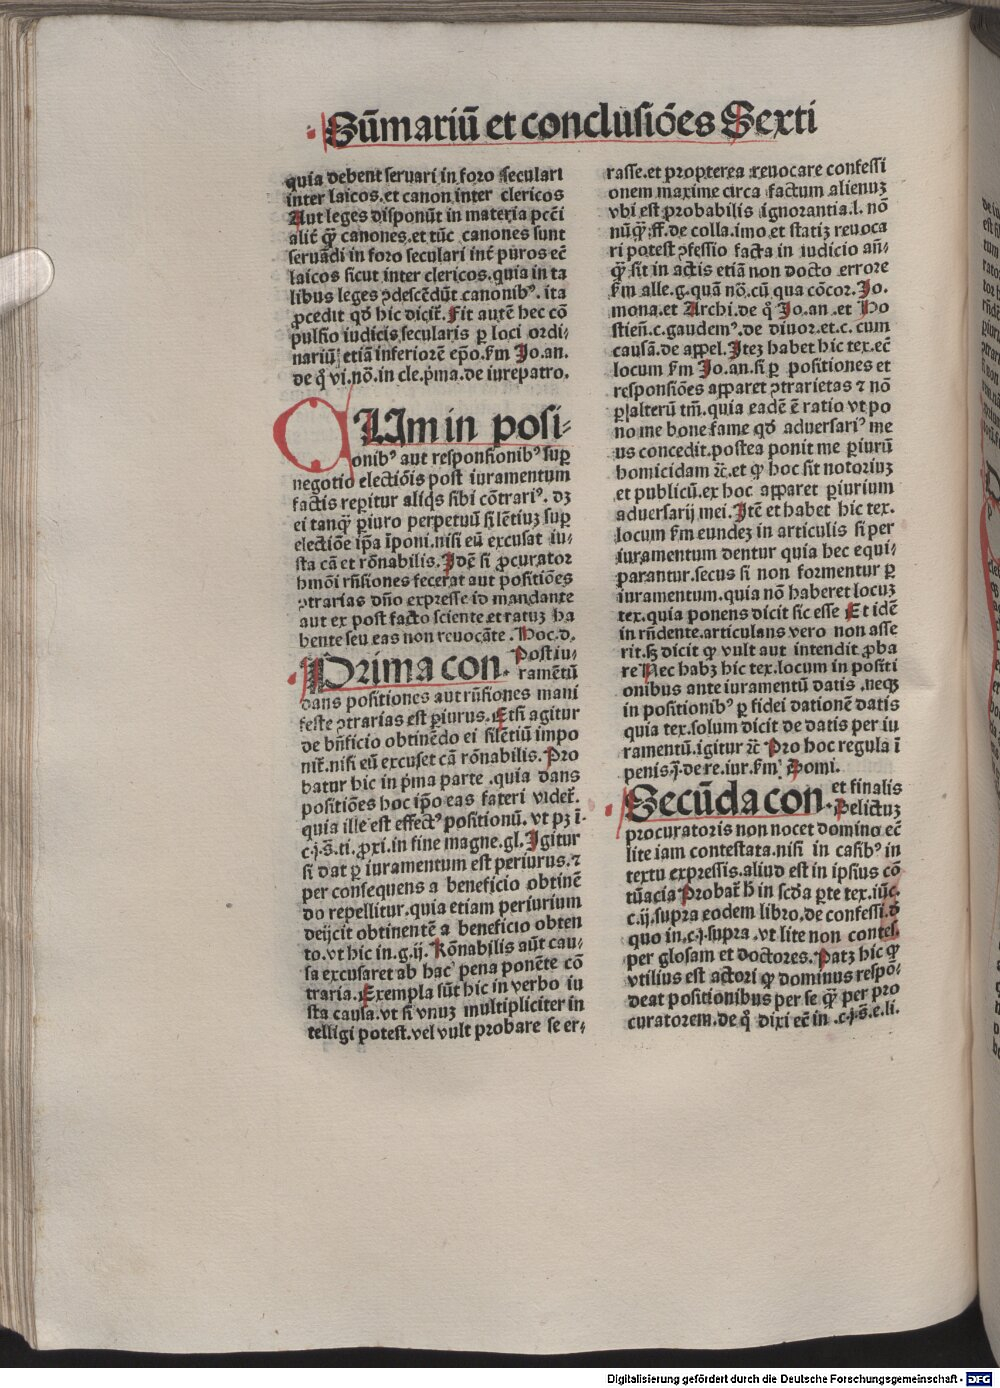 Sūmariū et conclusiōes Sexti
quia debent seruari in foro seculari
inter laicos.et canon inter clericos
Aut leges disponūt in materia pctī
alit̄ q̄ꝫ canones.et tūc canones sunt
seruādi in foro seculari int̄ puros et̄
laicos sicut inter clericos.quia in ta
libus leges ꝯdescēdūt canonibꝰ. ita
ꝓcedit qđ hic dicit̄. Fit autē hec cō
pulsio iudicis secularis ꝑ loci ordi⸗
nariū etiā inferiorē ep̄o.ẜm Jo.an.
de q̊ vi.nō.in cle.p̄ma.de iurepatro.
CUm in posi⸗
onibꝰ aut responsionibꝰ suꝑ
negotio electiōis post iuramentum
factis reꝑitur aliq̄s sibi cōtrariꝰ. dꝫ
ei tanqꝫ ꝑiuro perpetuū silētiuꝫ suꝑ
electiōe ip̄a īponi.nisi eū excusat iu⸗
sta cā et rōnabilis.Jdē si ꝓcurator
hmōi rn̄siones fecerat aut positiōes
ꝯtrarias dn̄o expresse id mandante
aut ex post facto sciente et ratuꝫ ha
bente seu eas non reuocāte. Hoc.d.
Prima con. Post iu⸗
ramētū
dans positiones aut rn̄siones mani
feste ꝯtrarias est ꝑiurus. Etsi agitur
de bn̄ficio obtinēdo ei silētiū impo
nit̄.nisi eū excuset cā rōnabilis. Pro
batur hic in p̄ma parte .quia dans
positiōes hoc ip̄o eas fateri videt̄.
quia ille est effectꝰ positionū. vt pꝫ i.
c.j.s̄.ti.ꝓxi.in fine magne.gl. Jgitur
si dat ꝑ iuramentum est periurus.⁊
per consequens a beneficio obtinē
do repellitur.quia etiam periurium
deijcit obtinentē a beneficio obten
to.vt hic in.g.ij. Rōnabilis aūt cau⸗
sa excusaret ab hac pena ponēte cō
traria. Exempla sūt hic in verbo iu
sta causa.vt si vnuꝫ multipliciter in
telligi potest.vel vult probare se er⸗
rasse.et propterea reuocare confessi
onem maxime circa factum alienuꝫ
vbi est probabilis ignorantia.l. nō
nūq̄ꝫ.ff.de colla.imo et statiꝫ reuoca
ri potest ꝯfessio facta in iudicio an̄⸗
q̄ꝫ sit in actis etiā non docto errore
ẜm alle.g.quā nō.cū qua cōcor. Jo.
mona.et Archi.de q̊ Jo.an .et Ho
stieñ.c.gaudemꝰ.de diuor.et.c. cum
causā.de appel. Jteꝫ habet hic tex.et̄
locum ẜm Jo.an.si ꝑ positiones et
responsiōes apparet ꝯtrarietas ⁊ nō
ꝑ alterū tm̄.quia eadē ē ratio vt po
no me bone fame qđ aduersariꝰ me
us concedit.postea ponit me ꝑiurū
homicidam ⁊c̄.et ꝙ hoc sit notoriuꝫ
et publicū.ex hoc apparet ꝑiurium
aduersarij mei. Jtē et habet hic tex.
locum ẜm eundeꝫ in articulis si per
iuramentum dentur quia hec equi⸗
parantur.secus si non formentur ꝑ
iuramentum.quia nō haberet locuꝫ
tex.quia ponens dicit sic esse Et idē
in rn̄dente.articulans vero non asse
rit.sꝫ dicit ꝙ vult aut intendit ꝓba
re Nec habꝫ hic tex.locum in positi
onibus ante iuramentū datis .neqꝫ
in positionibꝰ ꝑ fidei dationē datis
quia tex.solum dicit de datis per iu
ramentū.igitur ⁊c̄ Pro hoc regula ī
penis.j̄.de re.iur.ẜm Domi.
Secūda con. et finalis
Delictuꝫ
procuratoris non nocet domino et̄
lite iam contestata.nisi in casibꝰ in
textu expressis.aliud est in ipsius cō
tūacia Probat̄ h̄ in scđa ꝑte tex.iūc.
c.ij.supra eodem libro.de confessi.đ
quo in.c.j.supra .vt lite non contes.
per glosam et doctores. Patꝫ hic ꝙ
vtilius est actori ꝙ dominus respō⸗
deat positionibus per se q̄ꝫ per pro
curatorem.de q̊ dixi et̄ in .c.j.s̄.e.li.
Digitalisierung gefördert durch die Deutsche Forschungsgemeinschaft - DFG